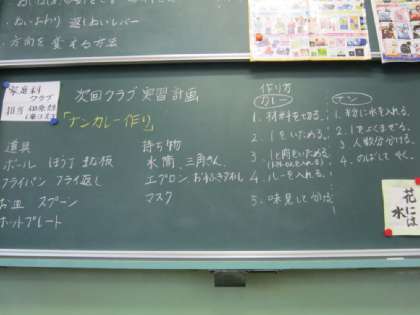 ぬいおわり 返しぬいレバー
・方向を変える方法
家庭科
クラブ
担当
次回クラブ実習計画
「ナンカレー作り」
道具
ボール ほう丁 まな板
フライパン フライ返し
お皿 スプーン
ホットプレート
持ち物
水筒、三角きん、
エプロン、おてふきタオル
マスク
作り方
カレー
1. 材料を切る。
2. 1をいためる。
3. 1と肉をいためる。
4. ルーを入れる。
5. 味見して
ナン
1. 粉に水を入れる。
2. 1をよくまぜる。
3. 人数分分ける。
4. のばして やく。
花には
水